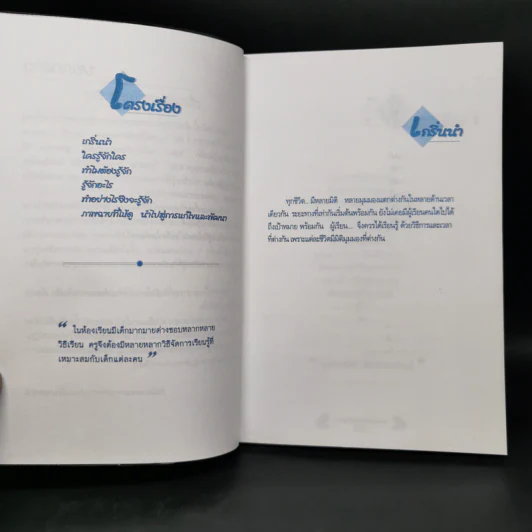 โครงเรื่อง
เกริ่นนำ
ใครรู้จักใคร
ทำไมต้องรู้จัก
รู้จักอะไร
ทำอย่างไรจึงจะรู้จัก
ภาพฉายที่ให้ดู นำไปสู่การแก้ไขและพัฒนา
“ ในห้องเรียนมีเด็กมากมายต่างชอบหลากหลาย
วิธีเรียน ครูจึงต้องมีหลายหลากวิธีจัดการเรียนรู้ที่
เหมาะสมกับเด็กแต่ละคน ”
เกริ่นนำ
ทุกชีวิต... มีหลายมิติ หลายมุมมองแตกต่างกันในหลายด้านเวลา
เดียวกัน ระยะทางที่เท่ากันเริ่มต้นพร้อมกัน ยังไม่เคยมีผู้เรียนคนใดไปได้
ถึงเป้าหมาย พร้อมกัน ผู้เรียน... จึงควรได้เรียนรู้ ด้วยวิธีการและเวลา
ที่ต่างกัน เพราะแต่ละชีวิตมีมิติมุมมองที่ต่างกัน